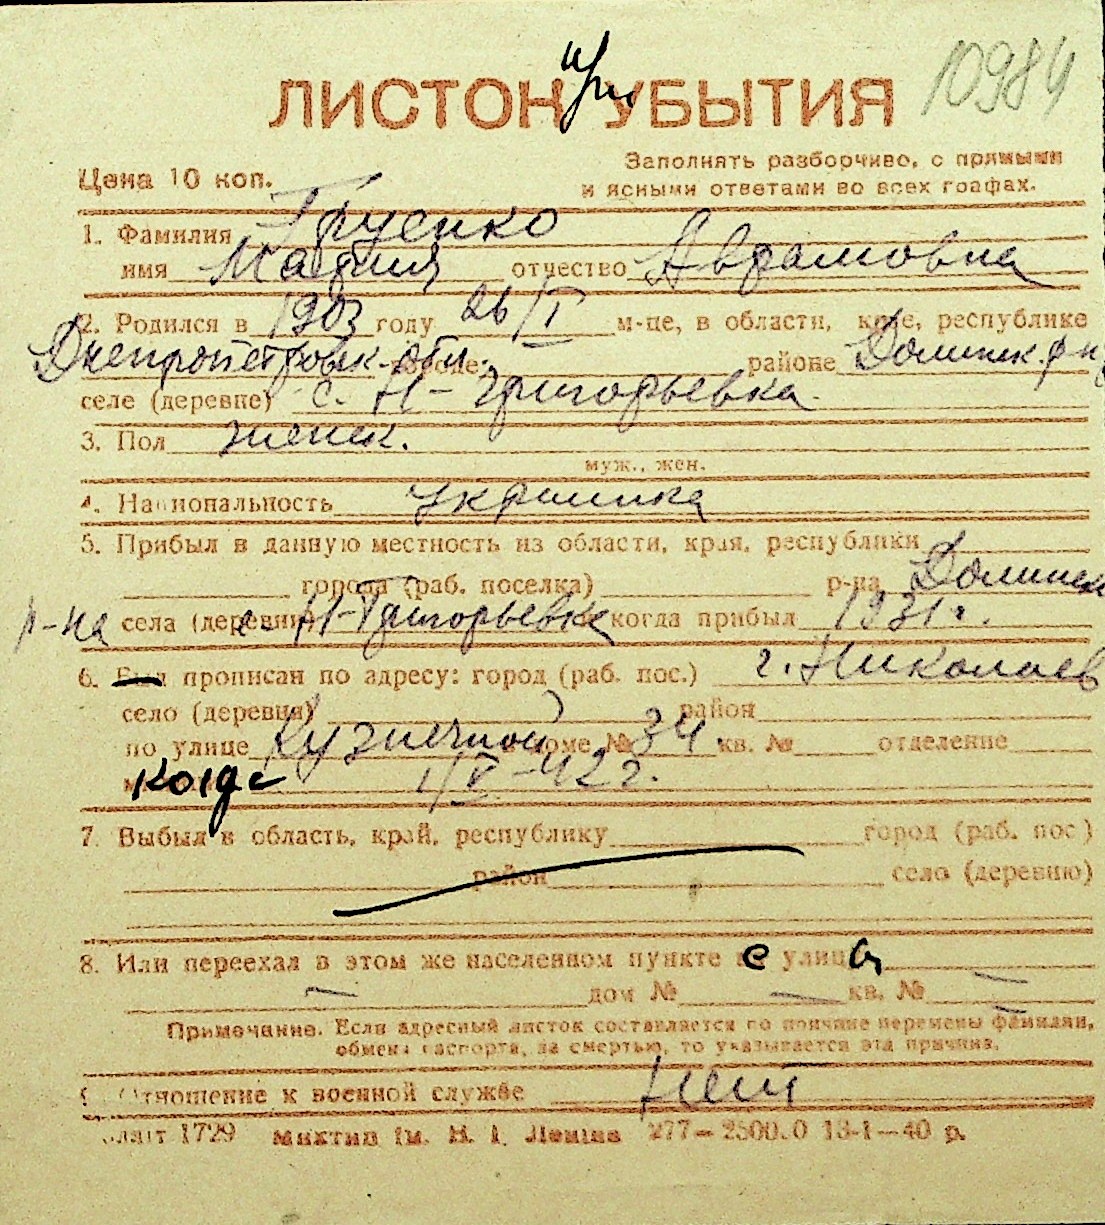 10984
ЛИСТОК при УБЫТИЯ
Цена 10 коп.
Заполнять разборчиво, с прямыми
и ясными ответами во всех графах.
1. Фамилия Грусенко
имя Мария отчество Аврамовна
2. Родился в 1903 году 26/I м-це, в области, крае, республике
Днепропетровск. обл. городе районе Долинск. р-н,
селе (деревне) с. Н-Григорьевка.
3. Пол женск.
муж., жен.
4. Национальность украинка
5. Прибыл в данную местность из области, края, республики
города (раб. поселка) р-на Долинск
р-на села (деревни) с. Н-Григорьевка и когда прибыл 1931 г.
6. Был прописан по адресу: город (раб. пос.) г. Николаев
село (деревня) район
по улице Кузнечной в доме № 34 кв. № отделение
когда 1/V-42 г.
7. Выбыл в область, край, республику город (раб. пос)
район село (деревню)
8. Или переехал в этом же населенном пункте с улицы
дом № кв. №
Примечание. Если адресный листок составляется по причине перемены фамилии,
обмена паспорта, за смертью, то указывается эта причина.
Отношение к военной службе Нет
1729 им. В. І. Леніна 277—2500.0 13-1—40 р.